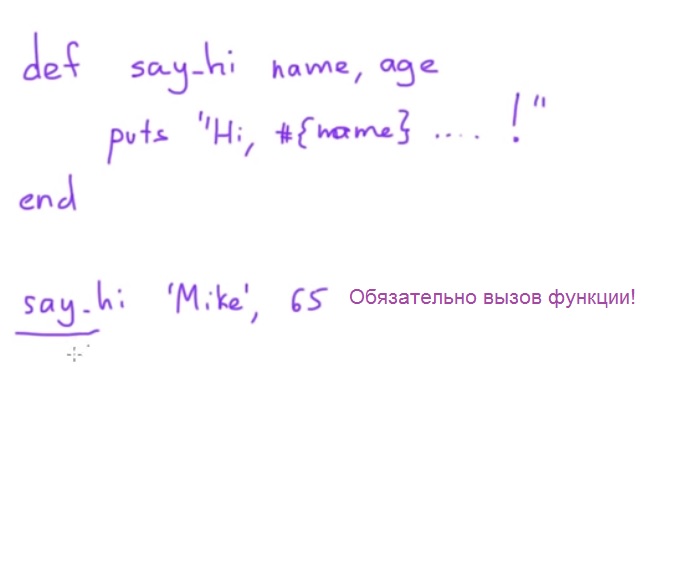 def say_hi name, age
puts "Hi, #{name} .... !"
end
say_hi 'Mike', 65 Обязательно вызов функции!